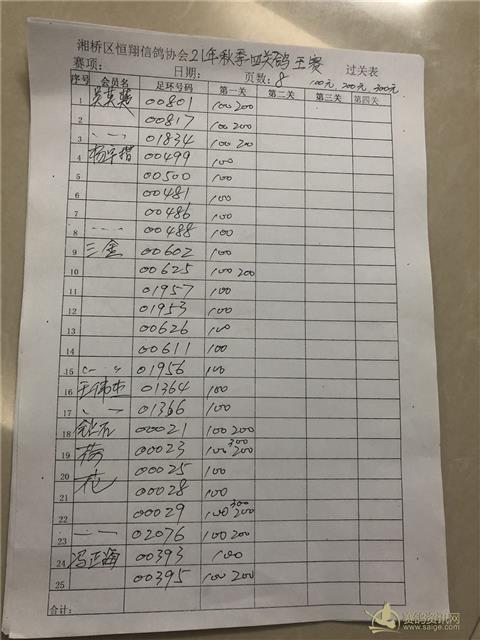 湘桥区恒翔信鸽协会21年秋季四关鸽王赛 过关表
赛项: 日期: 页数: 8 100元、200元、300元
序号 会员名 足环号码 第一关 第二关 第三关 第四关
1 00801 100 200
2 00817 100 200
3 01834 100 200
4 00499 100
5 00500 100
6 00481 100
7 00486 100
8 00488 100
9 三金 00602 100
10 00625 100 200
11 01957 100
12 01953 100
13 00626 100
14 00611 100
15 01956 100
16 王伟杰 01364 100
17 01366 100
18 钻石 00021 100 200
19 荷 00023 100 200 300
20 花 00025 100
21 00028 100
22 00029 100 200 300
23 02076 100 200
24 冯正海 00393 100
25 00395 100 200
合计:
赛鸽资讯网
www.saige.com